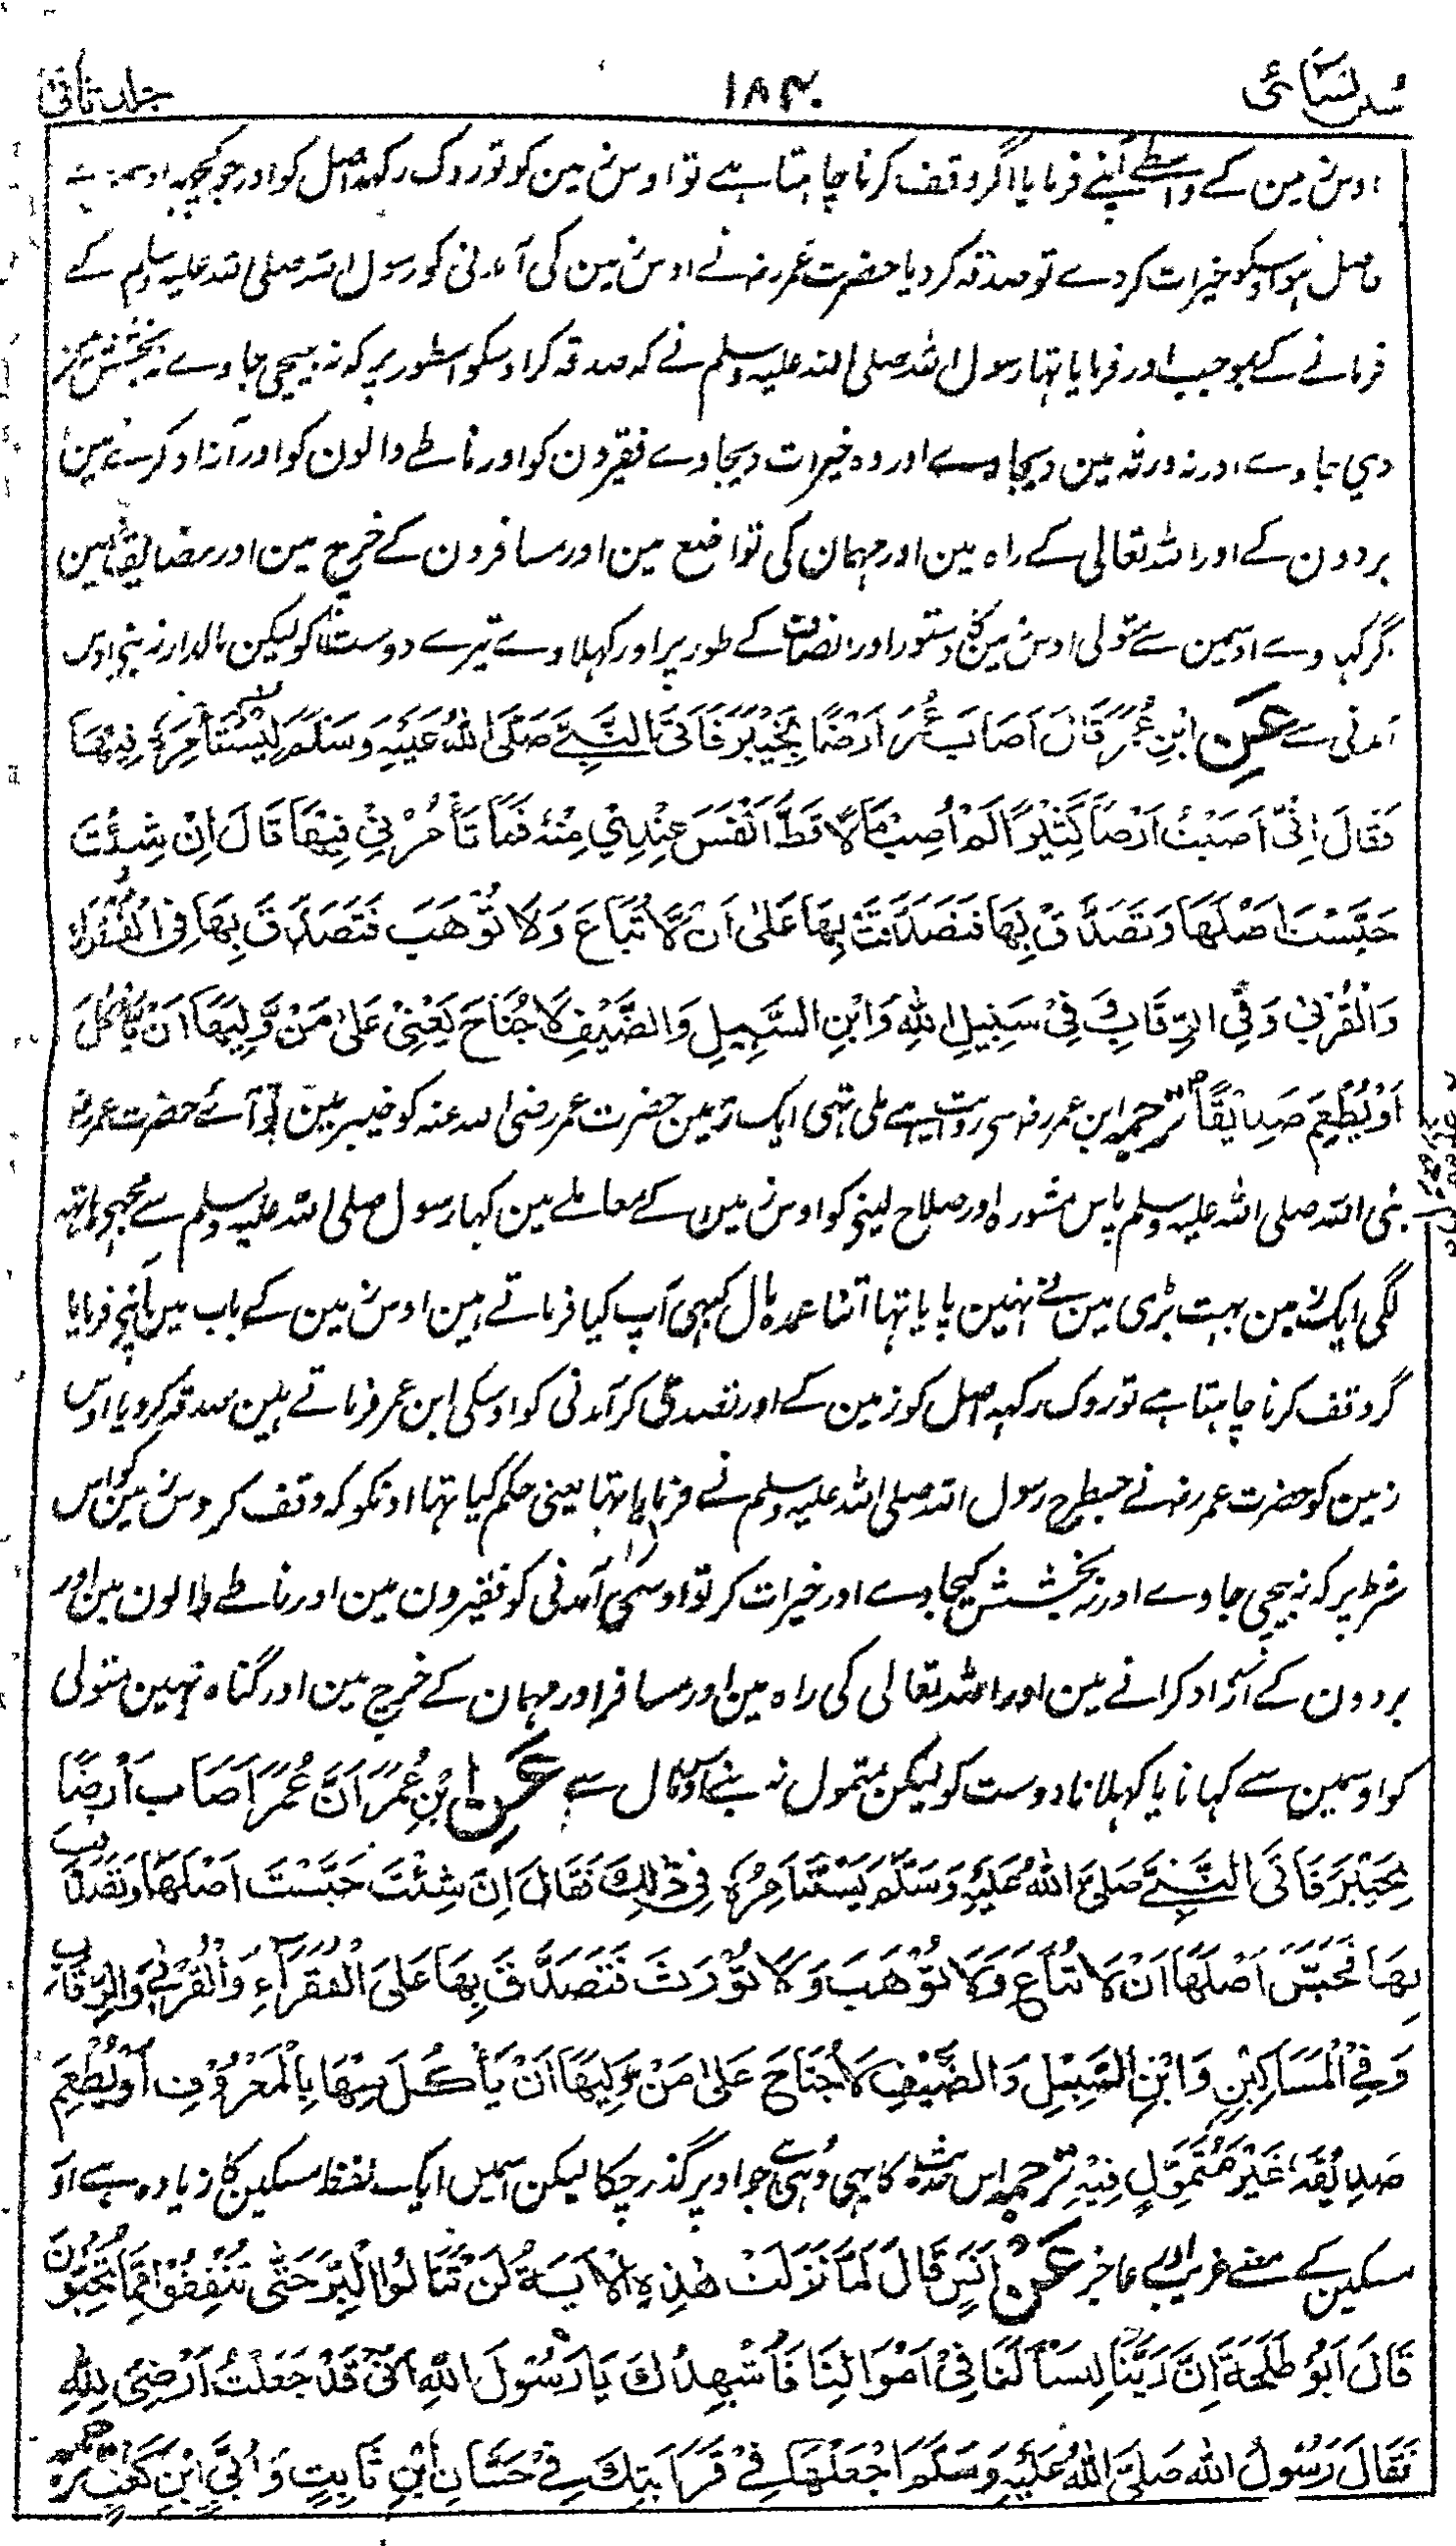 سنن نسائی
۱۸۴
جلد ثانی
اوس زمین کے واسطے آپنے فرمایا اگر وقف کرنا چاہتا ہے تو اوس زمین کو تو روک رکہہ اصل کو اور جو کچہہ
حاصل ہو اوسکو خیرات کردے تو صدقہ کر دیا حضرت عمر رضہ نے اوس زمین کی آمدنی کو رسول اللہ صلی اللہ علیہ وسلم کے
فرمانے کے بموجب اور فرمایا تہا رسول اللہ صلی اللہ علیہ وسلم نے کہ صدقہ کر اوسکو اسطور پر کہ نہ بیچی جاوے نہ بخشش
دی جاوے اور نہ ورثہ مین دیجاوے اور وہ خیرات دیجاوے فقیرون کو اور ناطے والون کو اور آزاد کرنے مین
بردون کے اور اللہ تعالی کے راہ مین اور مہمان کی تواضع مین اور مسافرون کے خرچ مین اور مضایقہ نہین
گر کہاوے اوسمین سے متولی اوس زمین کا دستور اور انصاف کے طور پر اور کہلاوے تیرے دوست کو لیکن مالدار نہ بنے اوس
آمدنی سے عَنِ ابْنِ عُمَرَ قَالَ اَصَابَ عُمَرُ اَرْضًا بِخَيْبَرَ فَاَتَى النَّبِيَّ صَلَّى اللهُ عَلَيْهِ وَسَلَّمَ لِيَسْتَأْمِرَهُ فِيْهَا
فَقَالَ اِنِّيْ اَصَبْتُ اَرْضًا كَثِيْرًا لَمْ اُصِبْ مَالًا قَطُّ اَنْفَسَ عِنْدِيْ مِنْهُ فَمَا تَأْمُرُنِيْ فِيْهَا قَالَ اِنْ شِئْتَ
حَبَّسْتَ اَصْلَهَا وَتَصَدَّقْ بِهَا فَتَصَدَّقَ بِهَا عَلٰى اَنْ لَّا تُبَاعَ وَلَا تُوْهَبَ فَتَصَدَّقَ بِهَا فِى الْفُقَرَاءِ
وَالْقُرْبٰى وَفِي الرِّقَابِ وَفِيْ سَبِيْلِ اللهِ وَابْنِ السَّبِيْلِ وَالضَّيْفِ لَا جُنَاحَ يَعْنِيْ عَلٰى مَنْ وَّلِيَهَا اَنْ يَّأْكُلَ
اَوْ يُطْعِمَ صَدِيْقًا ترجمہ ابن عمر رضہ سے روایت ہے ملی تہی ایک زمین حضرت عمر رضی اللہ عنہ کو خیبر مین تو آئے حضرت عمر رضہ
نبی اللہ صلی اللہ علیہ وسلم پاس مشورہ اور صلاح لینے کو اوس زمین کے معاملے مین کہا رسول صلی اللہ علیہ وسلم سے مجہے ہاتہہ
لگی ایک زمین بہت بڑی مین نے نہین پایا تہا اتنا عمدہ مال کبہی آپ کیا فرماتے ہین اوس زمین کے باب مین آپنے فرمایا
گر وقف کرنا چاہتا ہے تو روک رکہہ اصل کو زمین کے اور تصدق کر آمدنی کو اوسکی ابن عمر فرماتے ہین صدقہ کر دیا اوس
زمین کو حضرت عمر رضہ نے جسطرح رسول اللہ صلی اللہ علیہ وسلم نے فرمایا تہا یعنی حکم کیا تہا اونکو کہ وقف کر اوس زمین کو اس
شرط پر کہ نہ بیچی جاوے اور نہ بخشش کیجاوے اور خیرات کر تو اوسکی آمدنی کو فقیرون مین اور ناطے والون مین اور
بردون کے آزاد کرانے مین اور اللہ تعالی کی راہ مین اور مسافر اور مہمان کے خرچ مین اور گناہ نہین متولی
کو اوسمین سے کہانا یا کہلانا دوست کو لیکن متمول نہ بنے اوس مال سے عَنِ ابْنِ عُمَرَ اَنَّ عُمَرَ اَصَابَ اَرْضًا
بِخَيْبَرَ فَاَتَى النَّبِيَّ صَلَّى اللهُ عَلَيْهِ وَسَلَّمَ يَسْتَأْمِرُهُ فِيْ ذٰلِكَ فَقَالَ اِنْ شِئْتَ حَبَّسْتَ اَصْلَهَا وَتَصَدَّقْتَ
بِهَا فَحَبَّسَ اَصْلَهَا اَنْ لَا تُبَاعَ وَلَا تُوْهَبَ وَلَا تُوْرَثَ فَتَصَدَّقَ بِهَا عَلَى الْفُقَرَآءِ وَالْقُرْبٰى وَالرِّقَابِ
وَفِى الْمَسَاكِيْنِ وَابْنِ السَّبِيْلِ وَالضَّيْفِ لَا جُنَاحَ عَلٰى مَنْ وَلِيَهَا اَنْ يَأْكُلَ مِنْهَا بِالْمَعْرُوْفِ اَوْ يُطْعِمَ
صَدِيْقَهُ غَيْرَ مُتَمَوِّلٍ فِيْهِ ترجمہ اس حدیث کا بہی وہی ہے جو اوپر گذر چکا لیکن اسمین ایک لفظ مسکین کا زیادہ ہے اور
مسکین کے معنے غریب اور عاجز عَنْ اَنَسٍ قَالَ لَمَّا نَزَلَتْ هٰذِهِ الْاٰيَةُ لَنْ تَنَالُوا الْبِرَّ حَتّٰى تُنْفِقُوْا مِمَّا تُحِبُّوْنَ
قَالَ اَبُوْ طَلْحَةَ اِنَّ رَبَّنَا لِيَسْاَلَنَا فِيْ اَمْوَالِنَا فَاُشْهِدُكَ يَا رَسُوْلَ اللهِ اَنِّيْ قَدْ جَعَلْتُ اَرْضِيْ لِلّٰهِ
فَقَالَ رَسُوْلُ اللهِ صَلَّى اللهُ عَلَيْهِ وَسَلَّمَ اجْعَلْهَا فِيْ قَرَابَتِكَ فِيْ حَسَّانِ بْنِ ثَابِتٍ وَاُبَيِّ ابْنِ كَعْبٍ